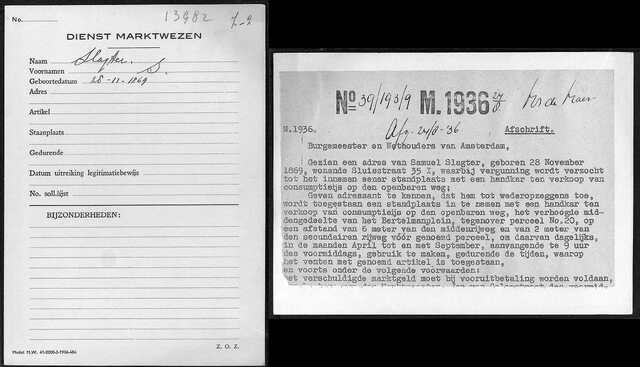 No.
13982 Z-2
DIENST MARKTWEZEN
Naam Slagter.
Voornamen S.
Geboortedatum 28-11-1869
Adres
Artikel
Staanplaats
Gedurende
Datum uitreiking legitimatiebewijs
No. soll.lijst
BIJZONDERHEDEN:
Z. O. Z.
Model M.W. 41-2000-3-1936-484
No 39/193/9 M. 1936
M.1936. Afg. 24/8-'36 Afschrift.
Burgemeester en Wethouders van Amsterdam,
Gezien een adres van Samuel Slagter, geboren 28 November
1869, wonende Sluisstraat 35 I, waarbij vergunning wordt verzocht
tot het innemen eener standplaats met een handkar ten verkoop van
consumptieijs op den openbaren weg;
Geven adressant te kennen, dat hem tot wederopzeggens toe,
wordt toegestaan een standplaats in te nemen met een handkar ten
verkoop van consumptieijs op den openbaren weg, het verhoogde mid-
dengedeelte van het Bertelmanplein, tegenover perceel No.20, op
een afstand van 6 meter van den middenrijweg en van 2 meter van
den secundairen rijweg vóór genoemd perceel, om daarvan dagelijks,
in de maanden April tot en met September, aanvangende te 9 uur
des voormiddags, gebruik te maken, gedurende de tijden, waarop
het venten met genoemd artikel is toegestaan,
en voorts onder de volgende voorwaarden:
het verschuldigde marktgeld moet bij vooruitbetaling worden voldaan,